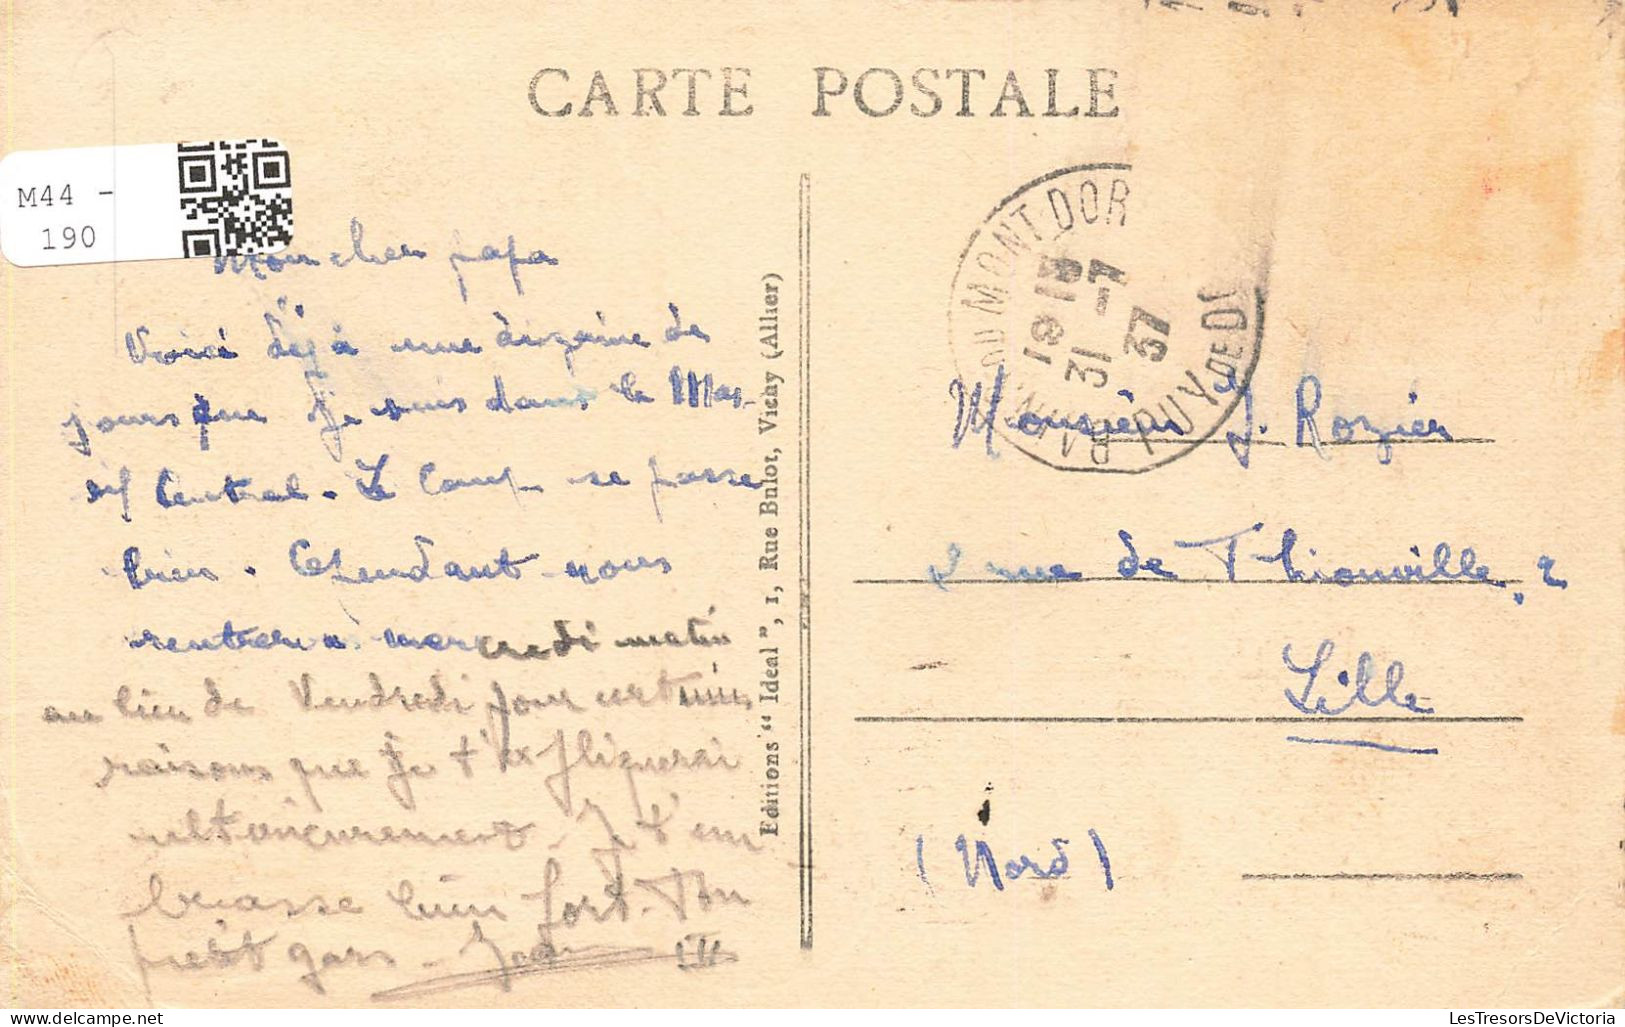 CARTE POSTALE
M44 -
190
Mon cher papa
Voici déjà une dizaine de
jours que je suis dans le Mas-
sif Central. Le Camp se passe
bien. Cependant nous
rentrerons mercredi matin
au lieu de Vendredi pour certaines
raisons que je t'expliquerai
ultérieurement. Je t'em
brasse bien fort. Ton
petit gars - Jean
Editions "Ideal", 1, Rue Bulot, Vichy (Allier)
MONT DOR
PUY DE D
19 15
31 -7
37
Monsieur J. Rozier
2 rue de Thionville, 2
Lille
(Nord)
LesTresorsDeVictoria
www.delcampe.net